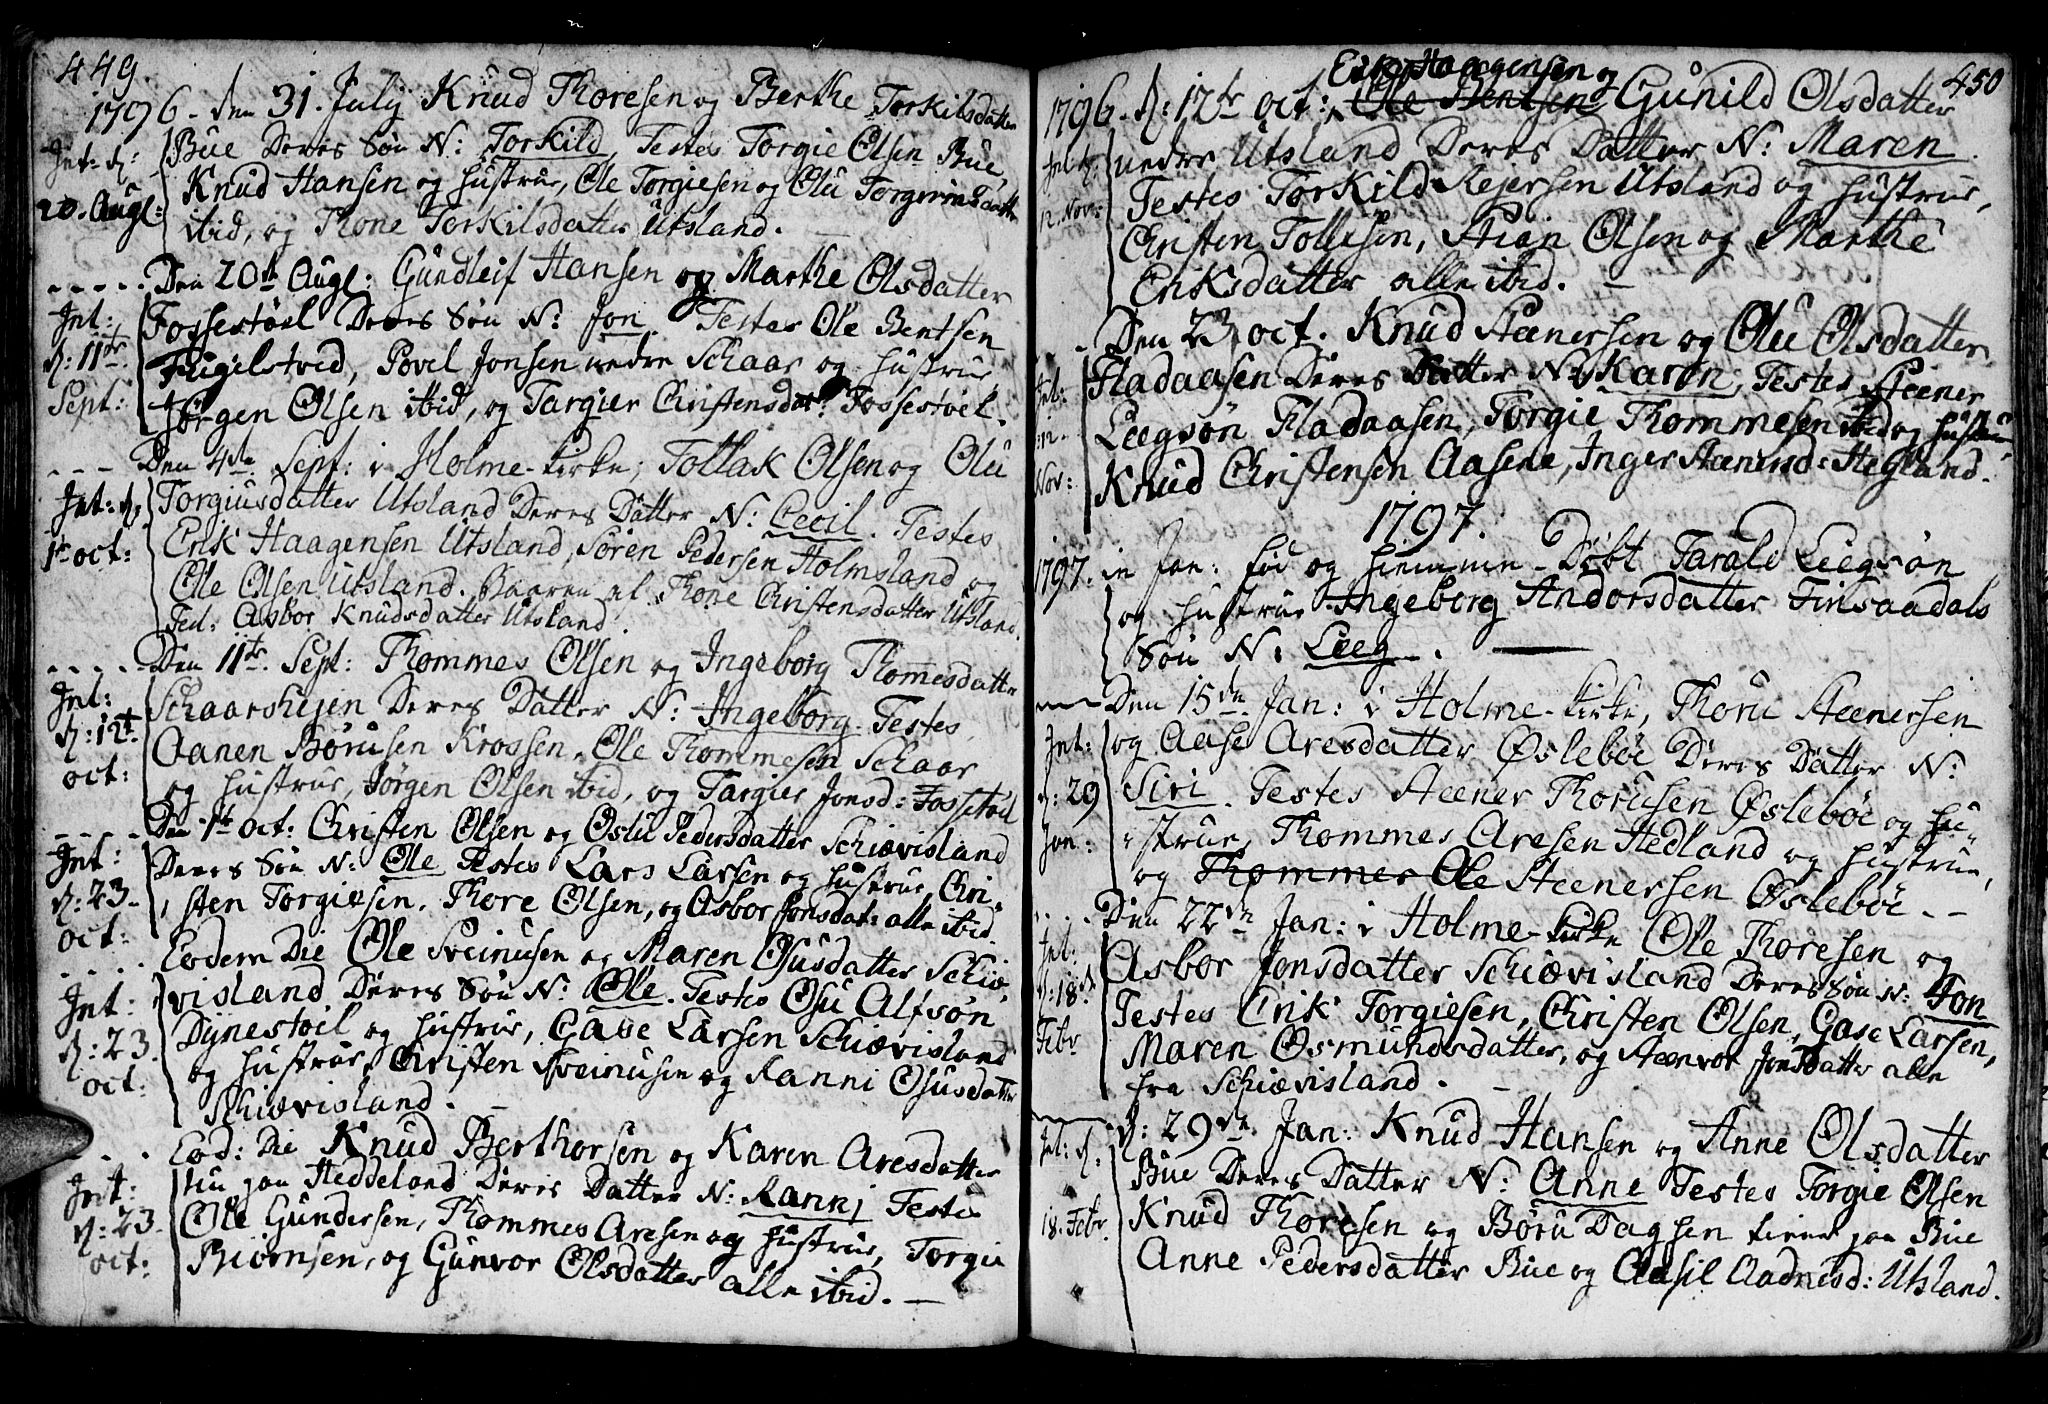 449.
1796. den 31. July Knud Thoresen og Berthe Torkilsdatter
Int: d:
Bue Deres Søn N: Torkild, Testes Torgie Olsen Bue,
20. Augl:
Knud Hansen og Hustrue, Ole Torgiesen og Olu
ibid, og Thone Torkilsdatter Utsland.
Den 20de Augl: Gundleif Hansen og Marthe Olsdatter
Int:
Fossestøel Deres Søn N: Jon. Testes Ole Bentsen
d: 11te
Fugelstvid, Povel Jonsen nedre Schaar og Hustrue,
Sept:
Jørgen Olsen ibid, og Targier Christensdat: Fossestøel.
Den 4de Sept: i Holme-Kirke; Tollak Olsen og Olu
Int: d:
Torgiusdatter Utsland Deres Datter N: Cecil. Testes
1te oct:
Erik Haagensen Utsland, Søren Pedersen Holmsland og
Ole Olsen Utsland. Baaren af Thone Christensdatter Utsland.
Fed: Asbor Knudsdatter Utsland
Den 11te Sept: Thommes Olsen og Ingeborg Thomesdatter
Int:
Schaarsheien Deres Datter N: Ingeborg. Testes
d: 12t
Aanen Børusen Krossen, Ole Thommesen Schaar
oct:
og Hustrue, Jørgen Olsen ibid, og Targier Jonsd: Fossestøel
Den 1te Oct: Christen Olsen og Oslu Pedersdatter Schiævisland
Int:
Deres Søn N: Ole Testes Lars Larsen og Hustrue, Chri-
d: 23.
sten Torgiesen, Thore Olsen, og Asbor Jonsdat: alle ibid.
oct:
Eodem Die Ole Sveinusen og Maren Osusdatter Schiæ-
Int:
visland Deres Søn N: Ole. Testes Osu Alfsøn
d: 23.
Dynestøel og Hustrue, Gase Larsen Schiævisland
oct.
og Hustrue, Christen Sveinusen og Ranni Osusdatter
Schiævisland.
Eod: Die Knud Berthorsen og Karen Aresdatter
Int:
paa Heddeland Deres Datter N: Ranni Testes
d: 23.
Ole Gundersen, Thommes Aresen og Hustrue, Torgie
oct:
Biørnsen, og Gunvor Olsdatter alle ibid.
450
Erik Haagensen og
1796. d: 12te Oct: Ole Bentsen Gunild Olsdatter
Int d:
nedre Utsland Deres Datter N: Maren.
12. Nov:
Testes Torkild Rejersen Utsland og Hustrue,
Christen Tollisen, Stian Olsen og Marthe
Eriksdatter alle ibid.
Den 23 Oct. Knud Steenersen og Olu Olsdatter
Int:
Fladaasen Deres Datter N: Karen, Testes Steener
12.
Leegsøn Fladaasen, Torgie Thommesen ibid og Hustrue
Nov:
Knud Christensen Aasene, Inger Steenersd: Hegland.
1797.
1797. in Jan: fød og hiemme-Døbt Tarald Leegsøn
og Hustrue Ingeborg Andorsdatter Finsaadals
Søn N: Leeg.
Den 15de Jan: i Holme-Kirke, Thoru Steenersen
Int:
og Aase Aresdatter Øslebøe Deres Datter N:
d: 29
Siri. Testes Steener Thorusen Øslebøe og Hu-
Jan:
strue, Thommes Aresen Hedland og Hustrue,
og Thommes Ole Steenersen Øslebøe.
Den 22de Jan: i Holme-Kirke Ole Thoresen og
Int:
Asbor Jonsdatter Schiævisland Deres Søn N: Jon
d: 18.
Testes Erik Torgiesen, Christen Olsen, Gase Larsen,
Febr
Maren Osmundsdatter, og Steenvor Jonsdatter alle
fra Schiævisland.
d: 29de Jan: Knud Hansen og Anne Olsdatter
Int: d.
Bue Deres Datter N: Anne Testes Torgie Olsen
18. Febr.
Knud Thoresen og Børu Dagsen tiener paa Bue
Anne Pedersdatter Bue og Aasil Aadnesd: Utsland.